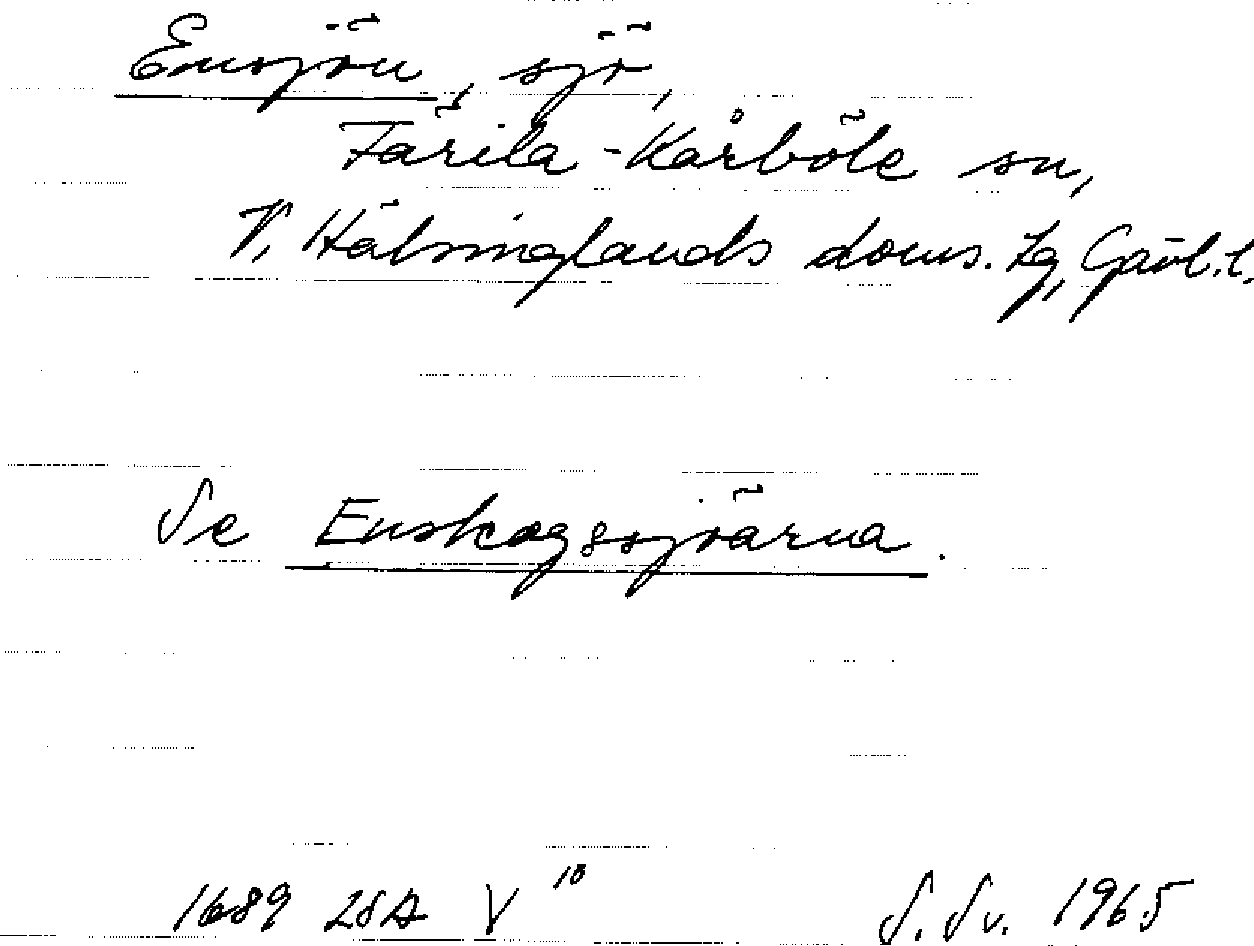 Ensjön, sjö,
Färila-Kårböle sn,
V. Hälsinglands doms. tg, Gävl. l.
Se Enskogssjöarna.
1689 LSA V 10
S. Sv. 1965